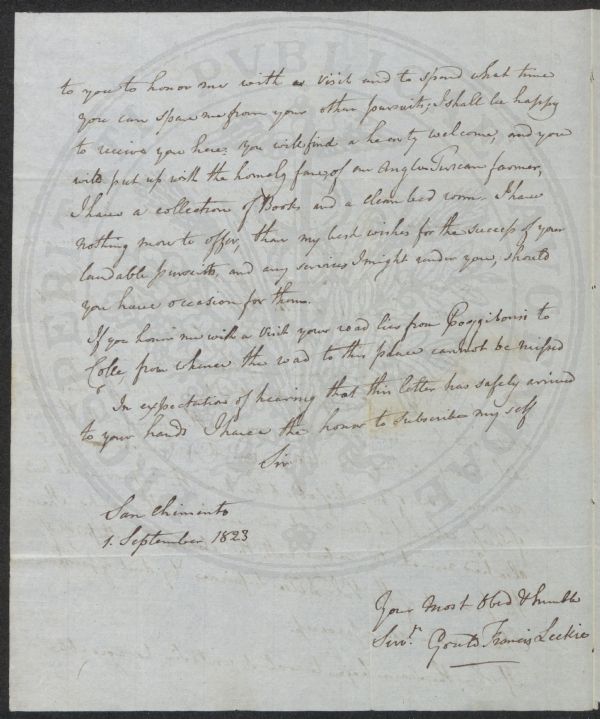 to you to honor me with a visit and to spend what time
you can spare me from your other pursuits; I shall be happy
to receive you here. you will find a hearty welcome, and you
will put up with the homely fare, of an Anglo Tuscan farmer,
I have a collection of Books and a clean bed room. I have
nothing more to offer, than my best wishes for the success of your
laudable pursuits, and any services I might render you, should
you have occasion for them.
If you honor me with a visit your road lies from Poggibonsi to
Colle, from whence the road to this place cannot be missed
In expectation of hearing that this letter has safely arrived
to your hands I have the honor to subscribe my self
Sir
San Chimento
1. September 1823
Your Most Obed & humble
Servt. Gould Francis Leckie
PVBLIC